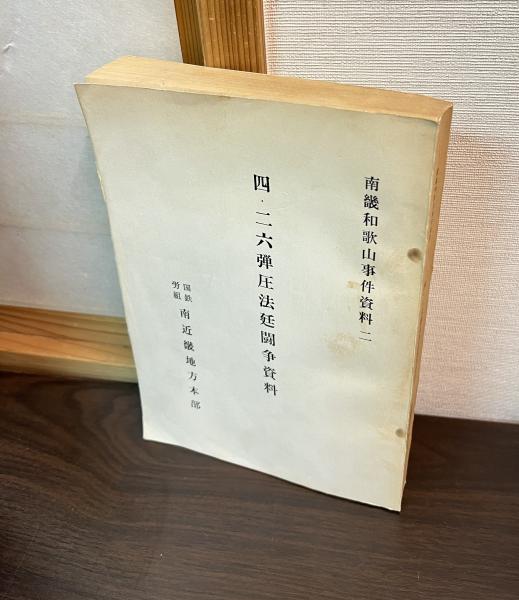 南畿和歌山事件資料二
四・二六弾圧法廷闘争資料
国鉄労組 南近畿地方本部